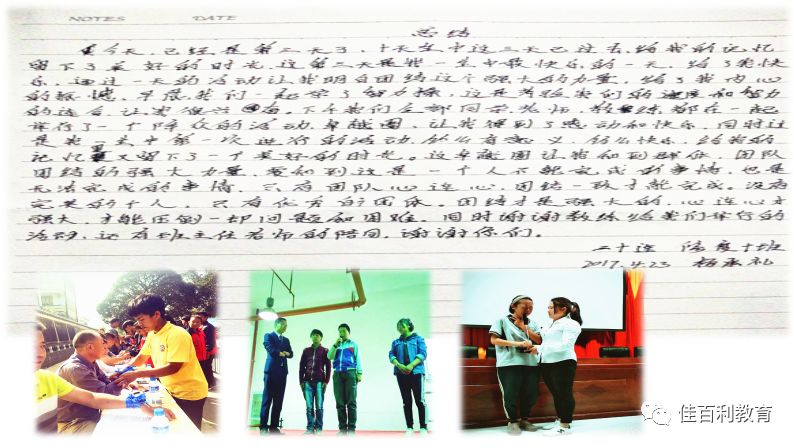 NOTES DATE
总结
今天,已经是第三天了,十天当中这三天已过去,给我的记忆
留下了美好的时光,这第三天是我一生中最快乐的一天,给了我快
乐,通过一天的活动让我明白团结这个强大的力量,给了我内心
的震憾,早晨我们一起学了智力操,这是考验我们的速度和智力
的适合,让我很兴奋。下午我们全部同学、老师、教练都在一起
举行了一个的活动,卓越圈,让我得到了感动和快乐,同时这
是我一生中第一次进行的活动,什么有意义,什么快乐,给我的
记忆里又留下了一个美好的时光。这卓越圈让我知到群体,团队
团结的强大力量,要知到这是一个人不能完成的事情,也是
无法完成的事情,只有团队心连心,团结一致才能完成。没有
完美的个人,只有优秀的团体。团结才是强大的,心连心才
强大,才能压倒一却问题和困难。同时谢谢教练给我们举行的
活动,还有班主任老师的陪同,谢谢你们。
二十连 十班
2017.4.23
佳百利教育